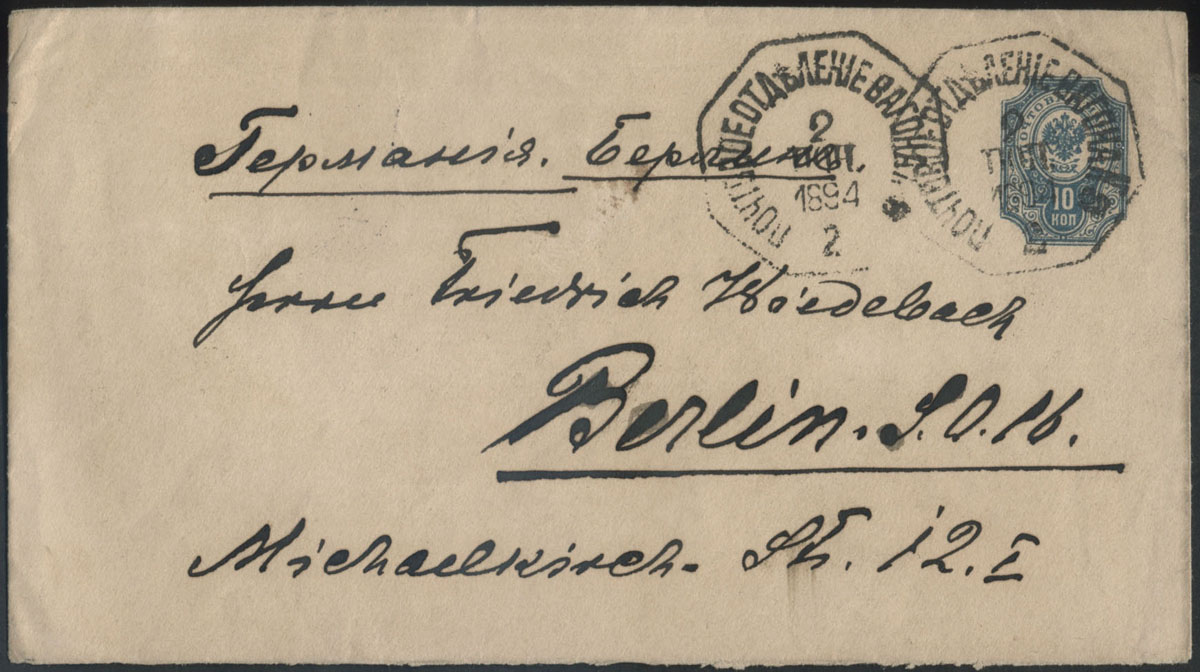 ПОЧТОВОЕ ОТДѢЛЕНІЕ ВАГОНЪ
2
1894
2
ПОЧТОВОЕ ОТДѢЛЕНІЕ ВАГОНЪ
2
10
КОП
Германія. Берлинъ.
Herrn Friedrich Wiedebach
Berlin. S.O. 16.
Michaelkirch- St. 12. I